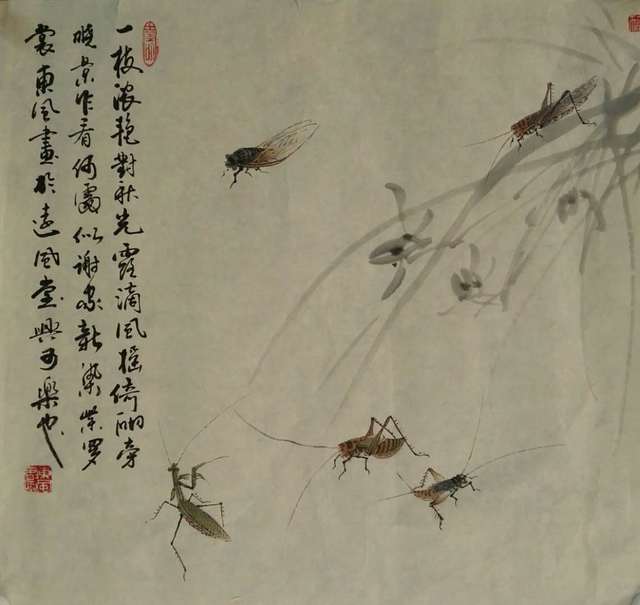 一枝浓艳對秋光露滴风摇倚砌旁
晓景乍看何處似謝家新染紫罗
裳東风畫於遠风堂興可樂也